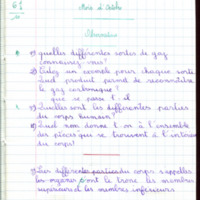 61
Mois d'Octobre
1) quelles différentes sortes de gaz
connaissez-vous?
2) Citez un exemple pour chaque sorte
3) Quel produit permet de reconnaître
le gaz carbonique?
que se passe-t-il
1) Quelles sont les différentes parties
du corps humain?
2) Quel nom donne-t-on à l'ensemble
des pièces qui se trouvent à l'intérieur
du corps?
1) Les différentes parties du corps s'appellent
les organes sont le tronc les membres
supérieurs et les membres inférieurs